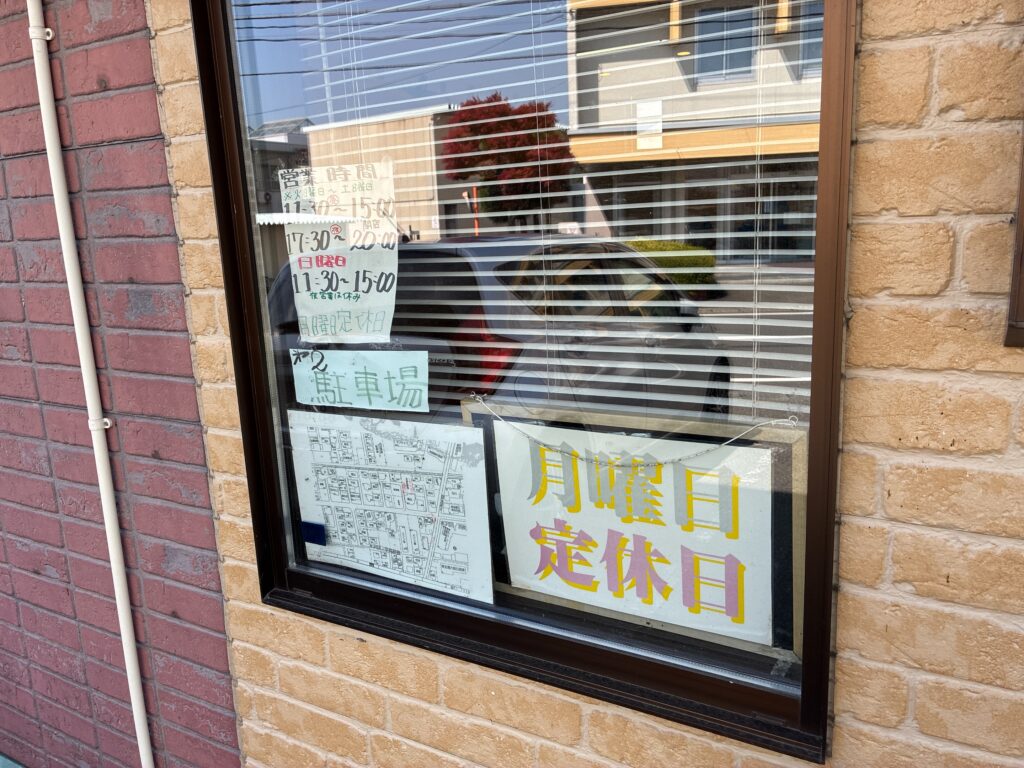 営業時間
※火曜日〜土曜日
11:30〜15:00
17:30〜20:00
日曜日
11:30〜15:00
夜営業は休み
月曜日定休日
第2
駐車場
月曜日
定休日